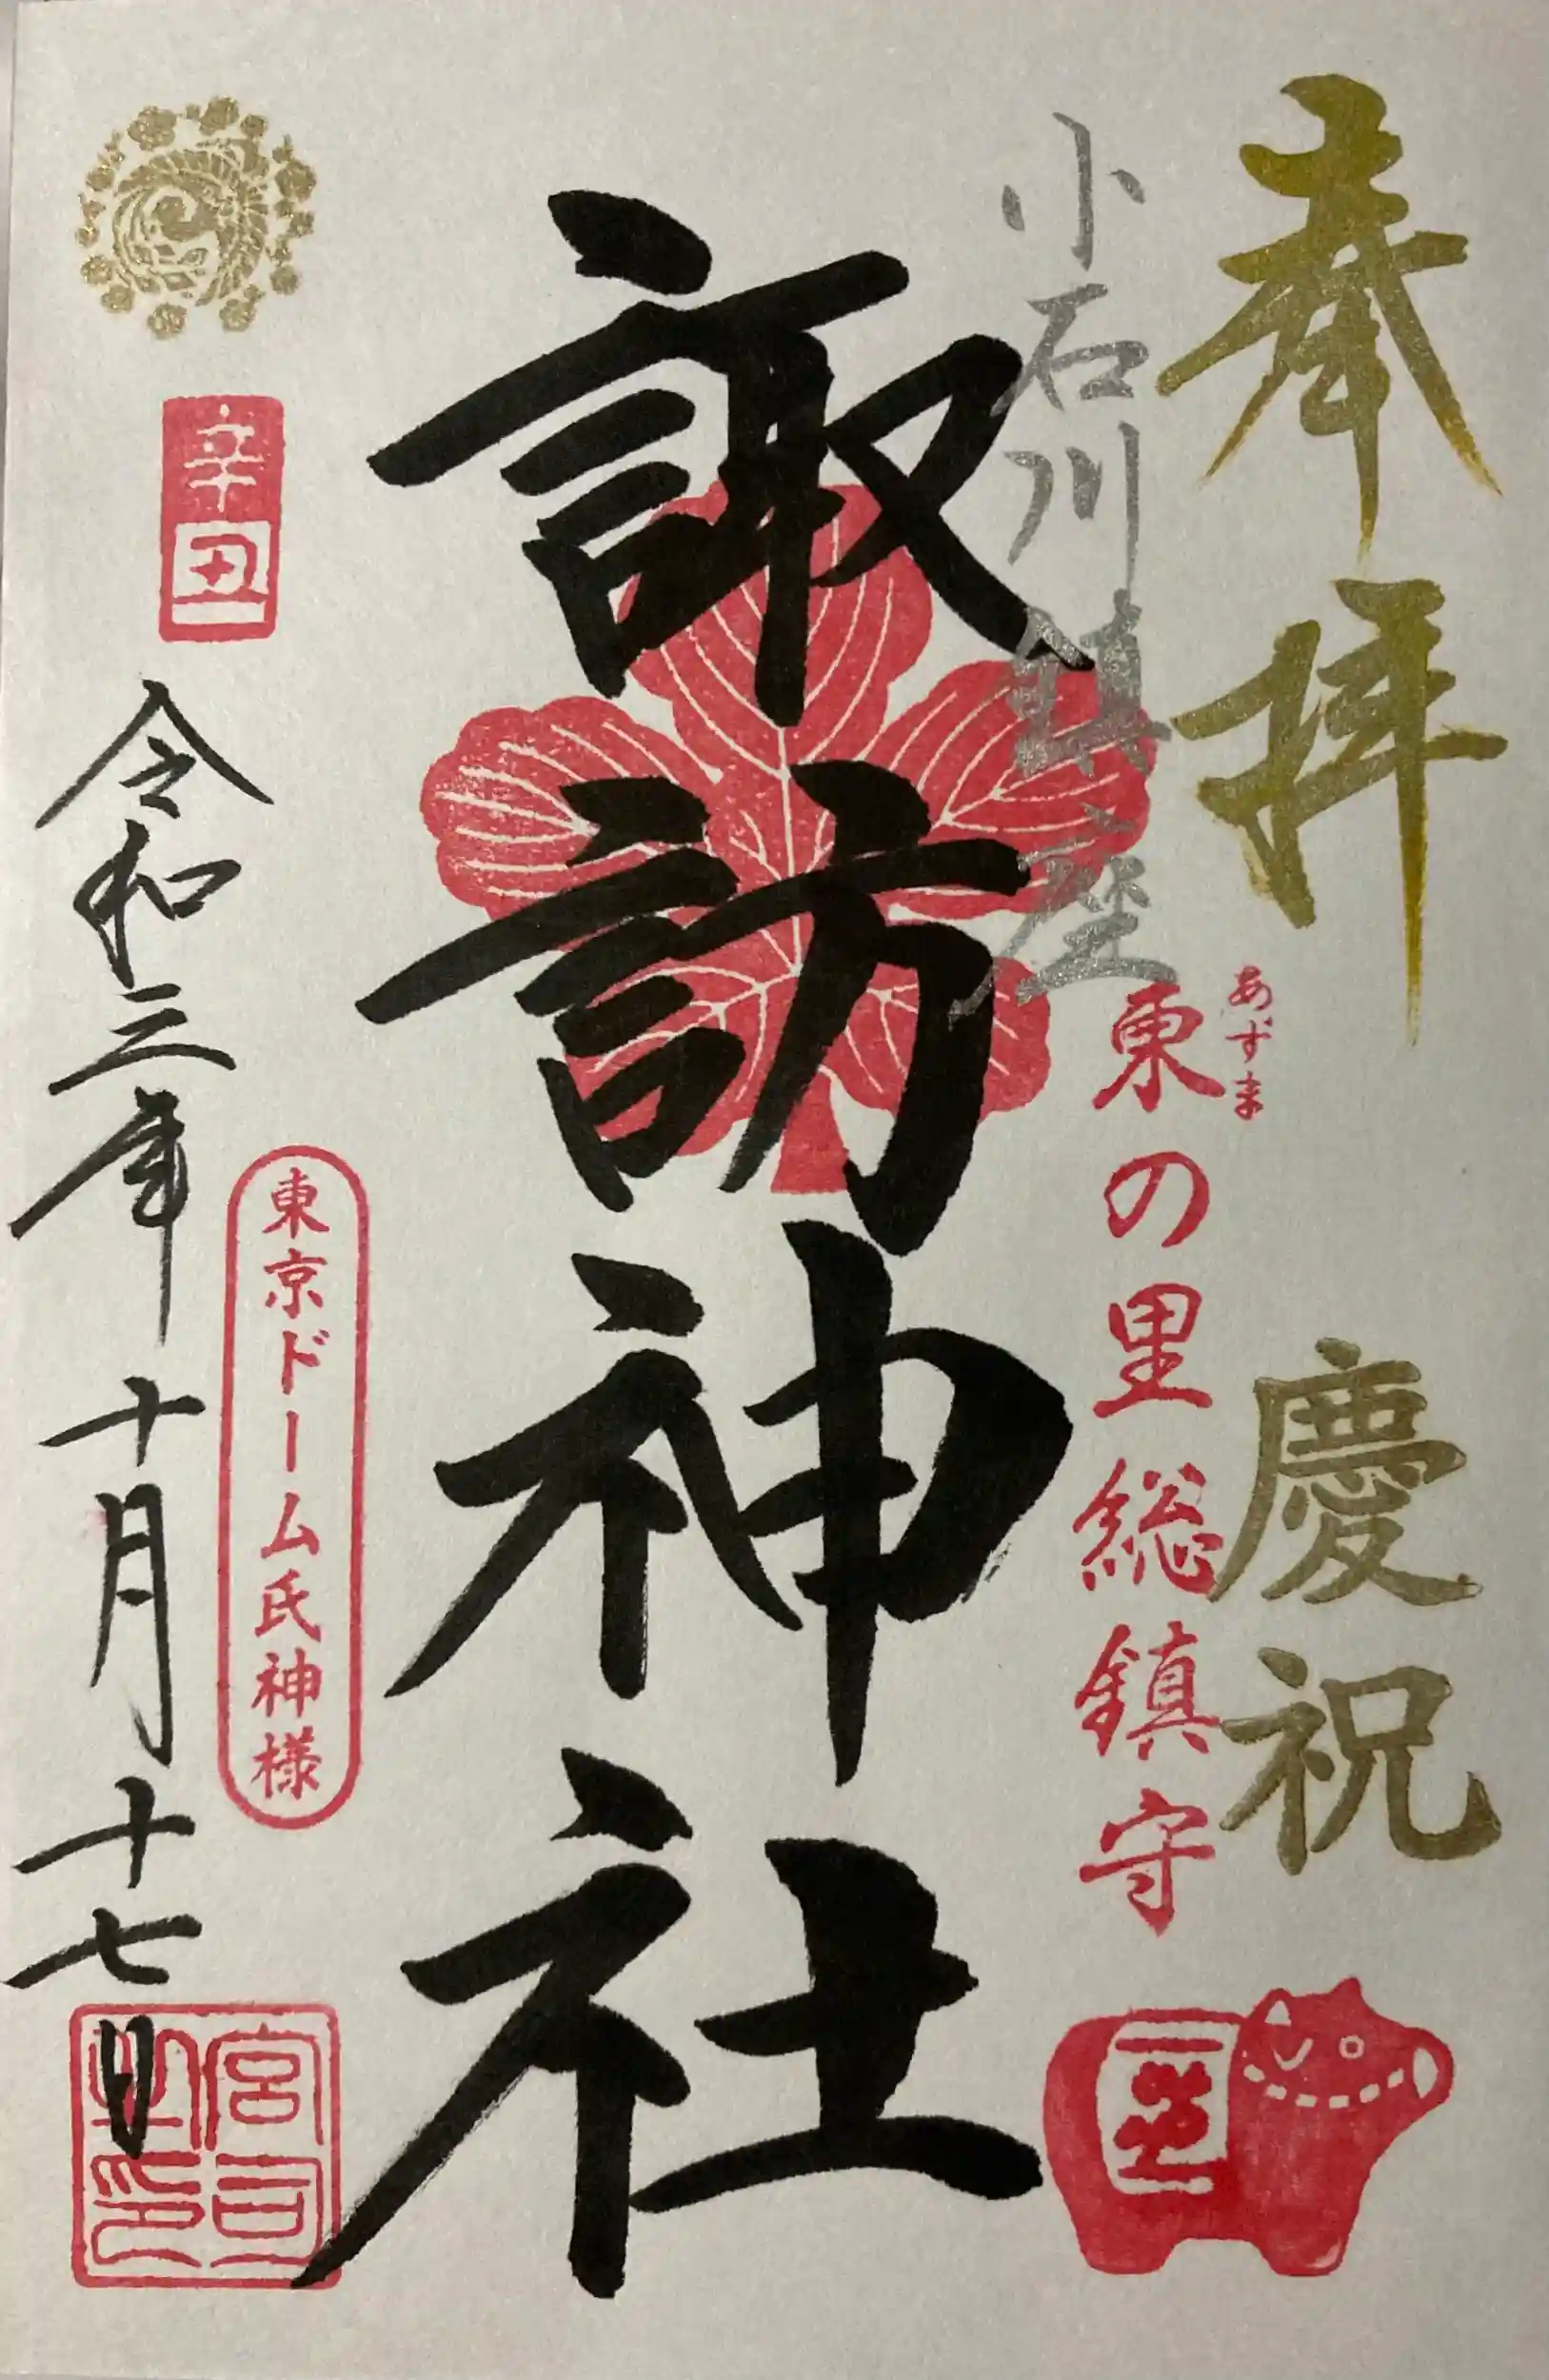 奉拝
慶祝
小石川鎮座
あずま
東の里総鎮守
諏訪神社
辛丑
東京ドーム氏神様
令和三年十月十七日
宮司
之印